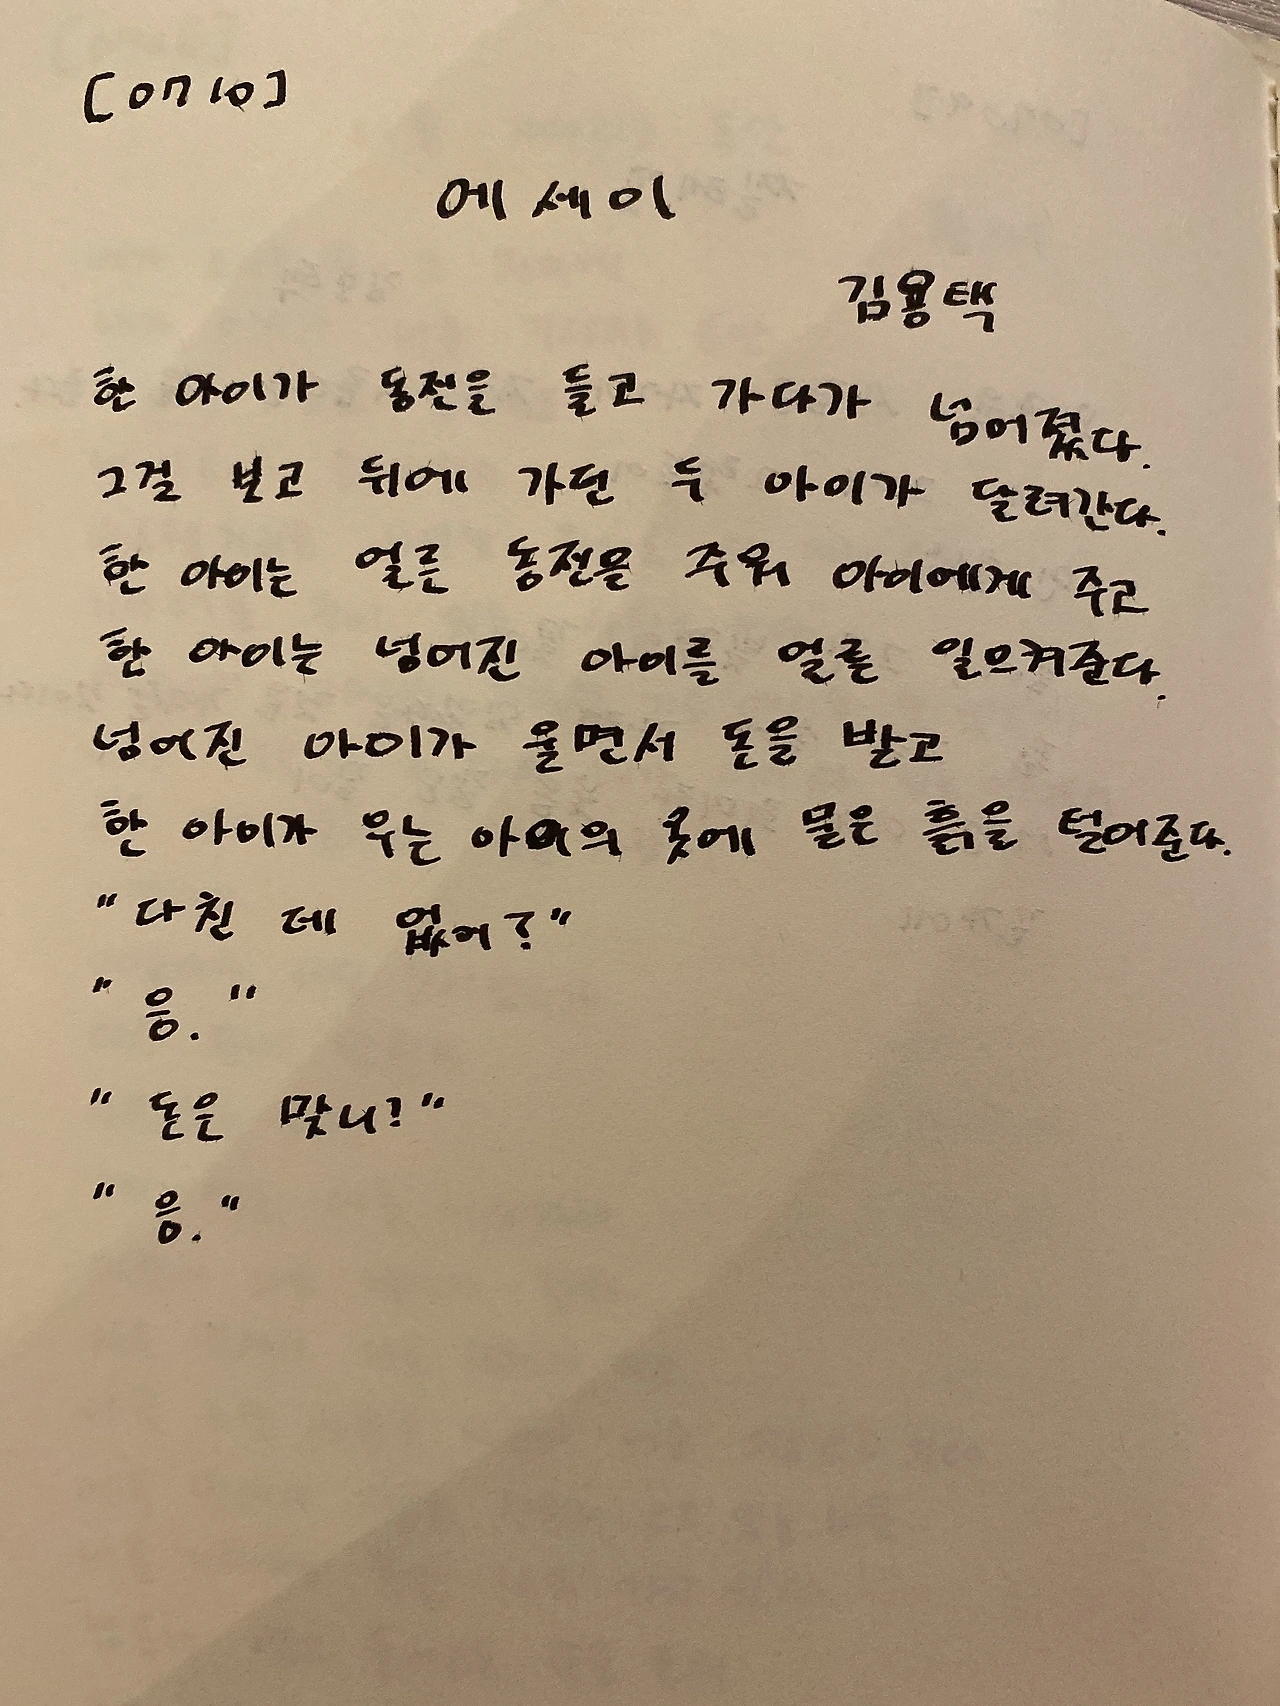 [0710]
에세이
김용택
한 아이가 동전을 들고 가다가 넘어졌다.
그걸 보고 뒤에 가던 두 아이가 달려간다.
한 아이는 얼른 동전을 주워 아이에게 주고
한 아이는 넘어진 아이를 얼른 일으켜준다.
넘어진 아이가 울면서 돈을 받고
한 아이가 우는 아이의 옷에 묻은 흙을 털어준다.
"다친 데 없어?"
"응."
"돈은 맞니?"
"응."